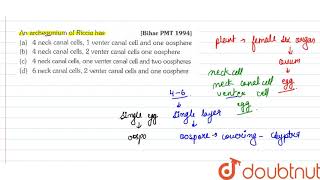 An archegonium of Riccia has [Bihar PMT 1994]
(a) 4 neck canal cells, 1 venter canal cell and one oosphere
(b) 4 neck canal cells, 2 venter canal cells and one oosphere
(c) 4 neck canal cells, one venter canal cell and two oospheres
(d) 6 neck canal cells, 2 venter canal cells and one oosphere
plant → female sex organ
↓
ovum
↓
egg
neck cell
neck canal cell
venter cell
egg
4-6
↓ ↓
single egg single layer
↓ ↓
oospo oospore → covering - calyptra
doubtnut